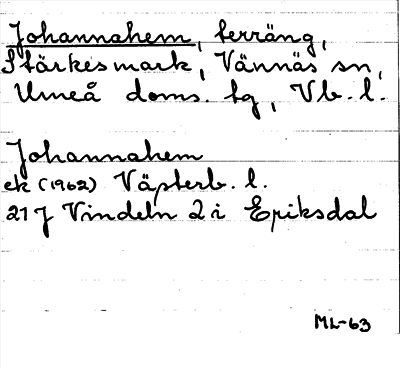 Johannahem, terräng,
Stärkesmark, Vännäs sn,
Umeå doms. tg, Vb. l.
Johannahem
ek (1962) Västerb. l.
21 J Vindeln 2 i Eriksdal
ML-63